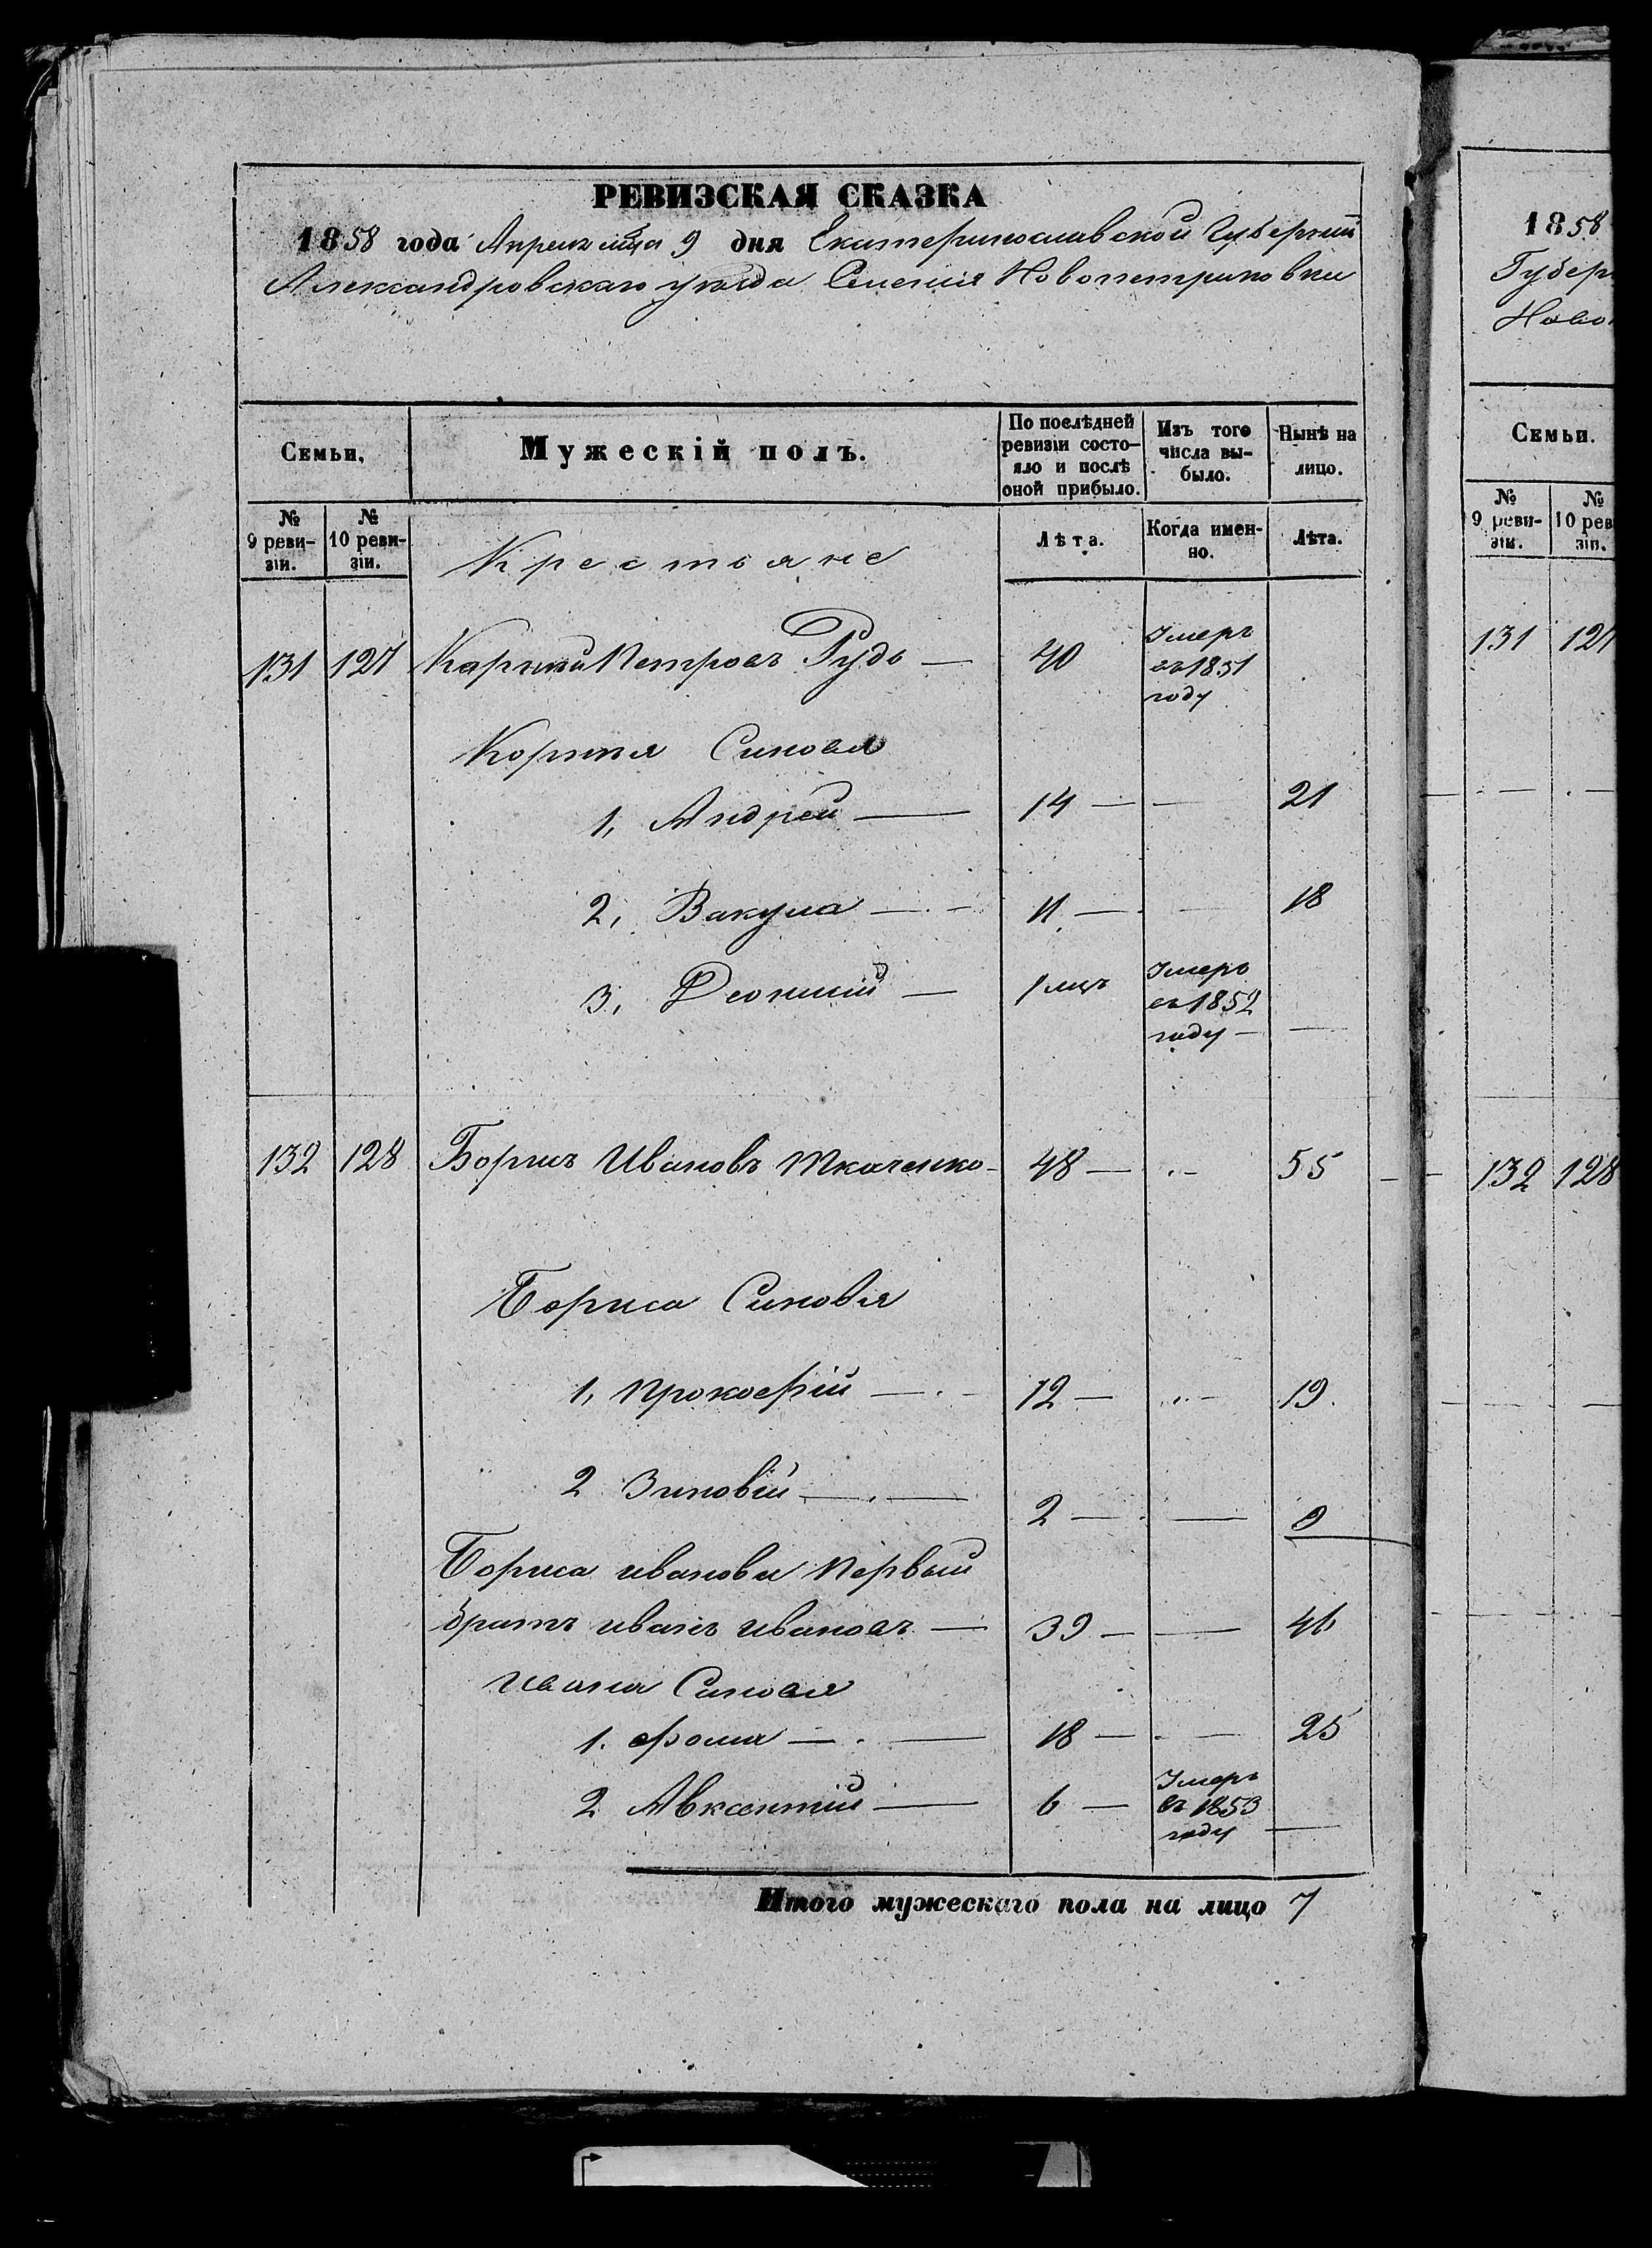 РЕВИЗСКАЯ СКАЗКА
1858 года Апреля мца 9 дня Екатеринославской Губернии
Александровскаго уезда Селения Новопетриковки
Семьи,
Мужескій полъ.
По послѣдней ревизіи состо-
яло и послѣ
оной прибыло.
Изъ того
числа вы-
было.
Нынѣ на
лицо.
№
9 реви-
зіи.
№
10 реви-
зіи.
Крестьяне
Лѣта.
Когда имен-
но.
Лѣта.
131 127 Карпий Петровъ Рудь — 40 Умеръ
въ 1851
году
Корнія Синовя
1, Андрей — 14 — — 21
2, Вакула — 11 — — 18
3, — 1 мцъ Умеръ
въ 1852
году —
132 128 Борисъ Ивановъ Ткаченко - 48 — 55
Бориса Синовя
1, Прокофій — 12 — 19.
2 Зиновій — 2 — — 9
Бориса иванова Первый
братъ иванъ ивановъ — 39 — — 46
Ивана Синовя
1. фома — 18 — — 25
2 Авксентій — 6 — Умеръ
въ 1853
году —
Итого мужескаго пола на лицо 7
1858
Губер
Ново
Семьи.
№
9 реви-
зіи.
№
10 рев
зіи.
131 127
132 128